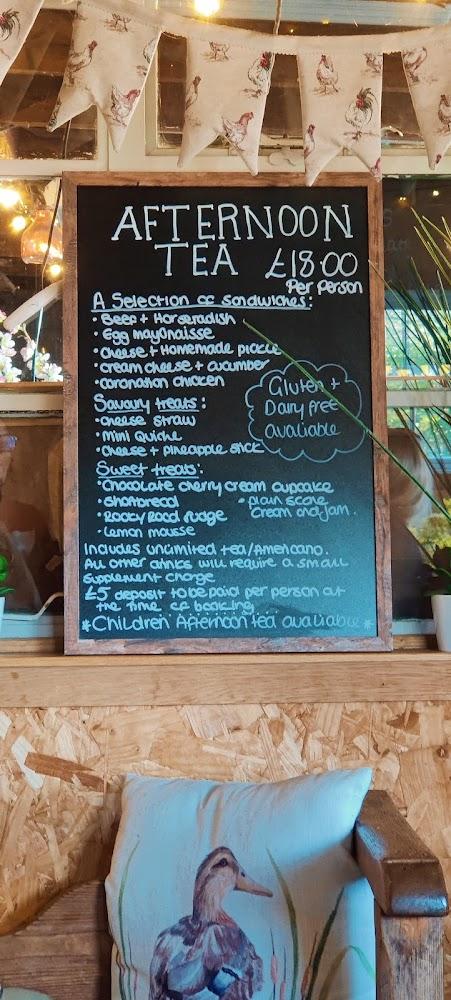 AFTERNOON
TEA £18.00
Per Person
A Selection of sandwiches:
• Beef + Horseradish
• Egg mayonaisse
• Cheese + Homemade pickle
• cream cheese + cucumber
• coronation chicken
Gluten +
Dairy free
available
Savoury treats:
• cheese straw
• Mini Quiche
• Cheese + pineapple stick
Sweet treats:
• Chocolate cherry cream cupcake
• Shortbread
• Plain Scone
Cream and jam.
• Rocky Road fudge
• Lemon mousse
Includes unlimited tea/Americano.
All other drinks will require a small
supplement charge
£5 deposit to be paid per person at
the time of booking
*Children Afternoon tea available*